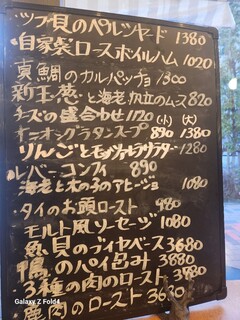 ・ツブ貝のペルシヤード 1380
・自家製ロースボイルハム 1020
・真鯛のカルパッチョ 1300
新玉葱と海老、帆立のムース 820
チーズの盛合わせ 1120 (小) (大)
オニオングラタンスープ 890 1380
りんごとモッツァレラサラダ 1280
レバーコンフィ 890
海老と木の子のアヒージョ 1080
・タイのお頭ロースト 980
モルト風ソーセージ 1080
魚貝のブイヤベース 3680
・鴨のパイ包み 3880
・3種の肉のロースト 3980
・鹿肉のロースト 3630
Galaxy Z Fold4